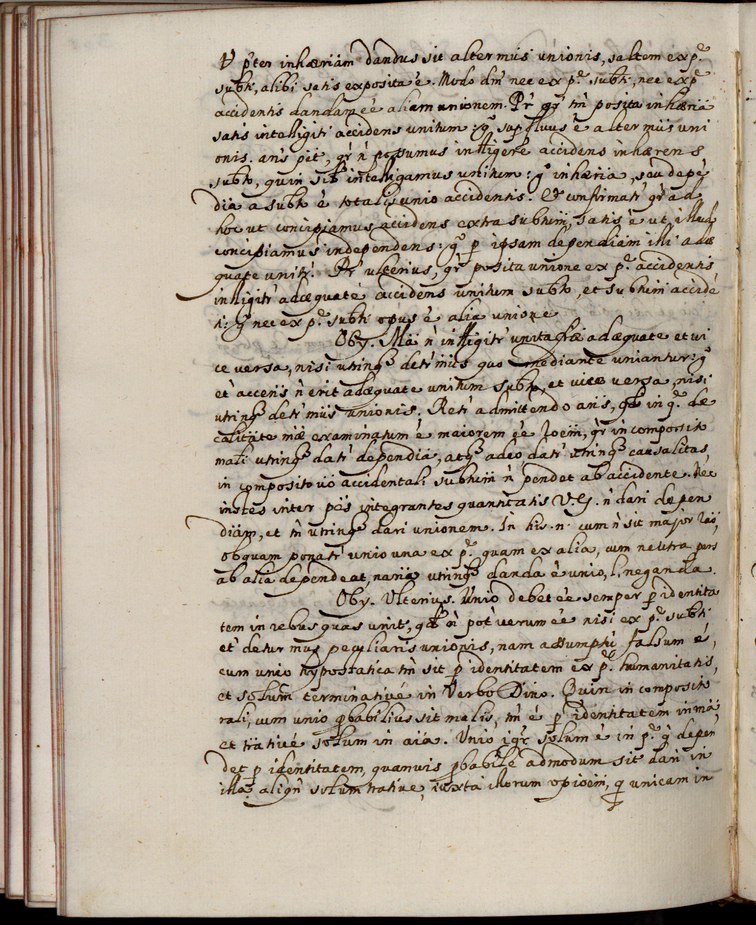 V pter inhæriam dandus sit alter mus unionis, saltem ex p.e
subti, alibi satis exposita ẽ. Modo dm̃ nec ex p.e subti, nec ex p.e
accidentis dandam eẽ aliam unionem. Pr̃ qr̃ tm̃ posita inhæriã
satis intelligitr̃ accidens unitum: g.o superfluus ẽ alter mus uni
onis. ans pit, qr̃ ñ possumus intlligere accidens inhærens
subto, quin sib intelligamus unitum: g.o inhæria, seu depẽ
dia a subto ẽ totalis unio accidentis. Et confirmatr̃ qr̃ ad
hoc ut concipiamus accidens extra subtum, satis ẽ ut illud
concipiamus independens: g.o p ipsam dependiam illi adæ
quate unitr̃. Pr̃ ulterius, qr̃ posita unione ex p.e accidentis
intlligitr̃ adæquatè accidens unitum subto, et subtum accidẽ
ti: g.o nec ex p.e subti opus ẽ alia unione
Obÿ. Mã ñ intlligitr̃ unita fræ adæquate et vi
ce versa, nisi utrinq detr̃ mus quo mediante uniantur: g.o
et accens ñ erit adæquate unitum subto, et vice versa, nisi
utrinq detr̃ mus unionis. Retr̃ admittendo ans, qd in q. de
calitate mæ examinatum ẽ maiorem eẽ Joem, qr̃ in composito
mali utrinq datr̃ dependia, atq adeo datr̃ utrinq causalitas,
in composito uo accidentali subtum ñ pendet ab accidente. Nec
instes inter ptes integrantes quantitatis V.G. ñ dari depen
diam, et tm̃ utrinq dari unionem. In his .n. cum ñ sit major rão,
ob quam ponatr̃ unio una ex p.e quam ex alia, cum neutra pars
ab alia dependeat, utrinq danda ẽ unio, l. neganda.
Obÿ. Ulterius. Unio debet eẽ semper p identita
tem in rebus quas unit, qd ñ pot verum eẽ nisi ex p.e subti
et detur mus peculiaris unionis, nam assumptũ falsum ẽ,
cum unio hypostatica tm̃ sit p identitatem ex p.e humanitatis,
et solum terminativé in Verbo Dino. Quin in composito
rali, cum unio pbabilius sit malis, tm̃ ẽ p identitatem in mã
et trativé solum in aia. Unio igr̃ solum ẽ in p.e q depen
det p identitatem, quamvis pbabile admodum sit dari in
illa aliqñ solum trative, iuxta illorum opioem, q unicam in